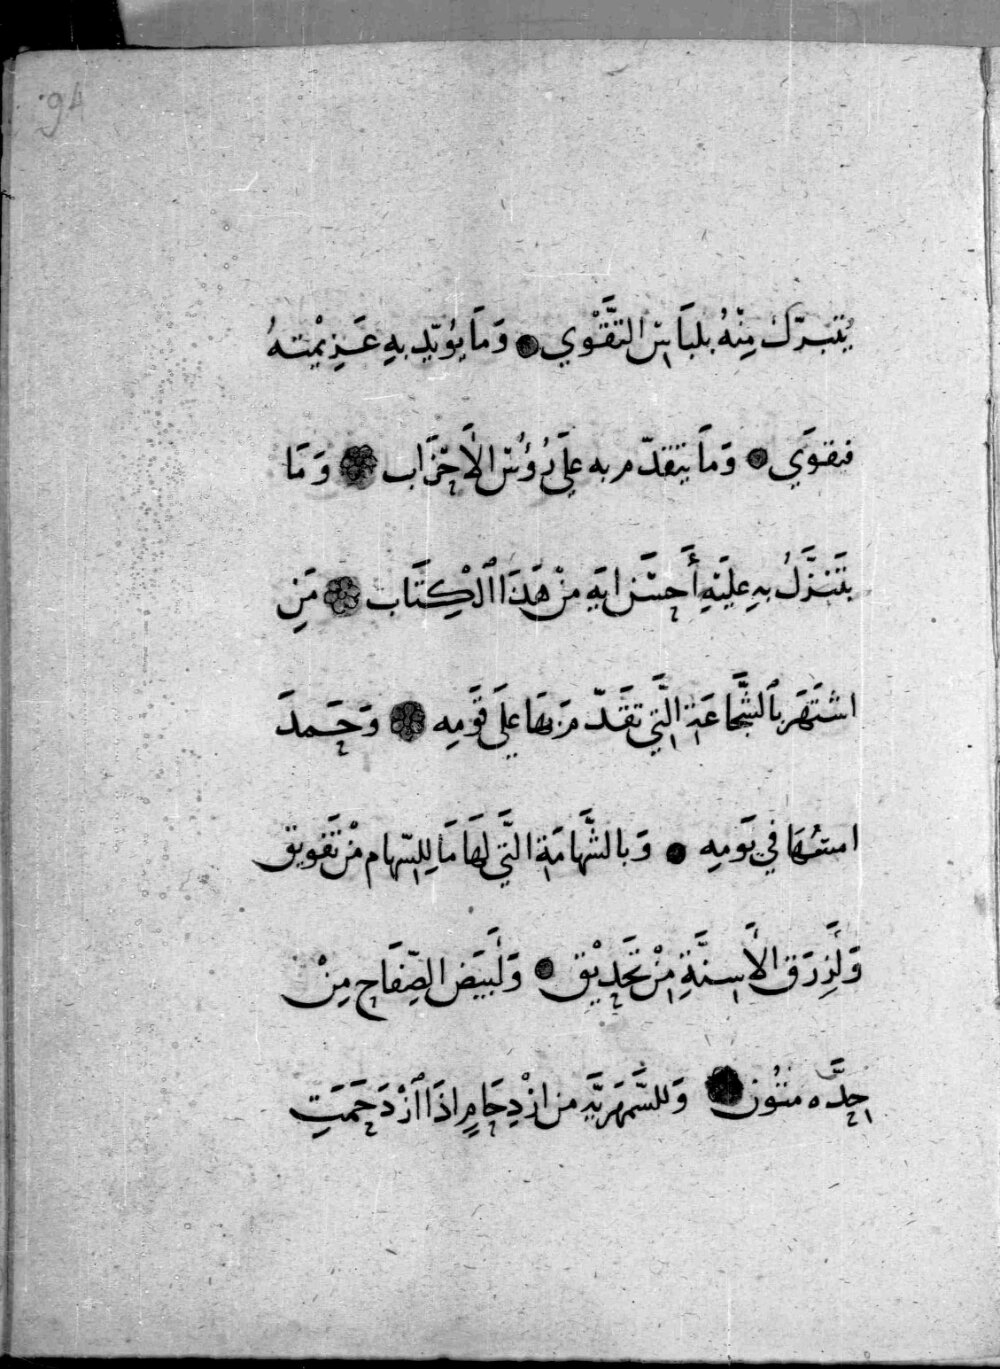 94
يُتبرّك مِنْهُ بلبَاسِ التَّقْوي وَمَا يؤيّد بهِ عَزِيمْتهُ
فتقوَي وَمَا يتقدّم به علَي رُؤُسِ الأَحْزَاب وَمَا
يتَنزَّلُ بهِ عليَهِ أَحسَن ايَهٍ منْ هَذَا الْكِتَاب مَنِ
اشتَهَر بالشَّجَاعَةِ الَّتِي تقَدّمَ بهَا علَي قَومِه وَحَمدَ
امسهَا في يَومِه وَبالشَّهامَةِ الَّتِي لهَا مَا لِلسّهام منْ تَفويق
وَلِزرَق الأَسِنَّةِ مِنْ تَحَدِيْق وَلِبيَض الصِّفَاح مِنْ
حِدَّه متُون وَللسَّمهَريَّهِ من ازْدِحَامٍ اذَا ازْدَحَمَتِ